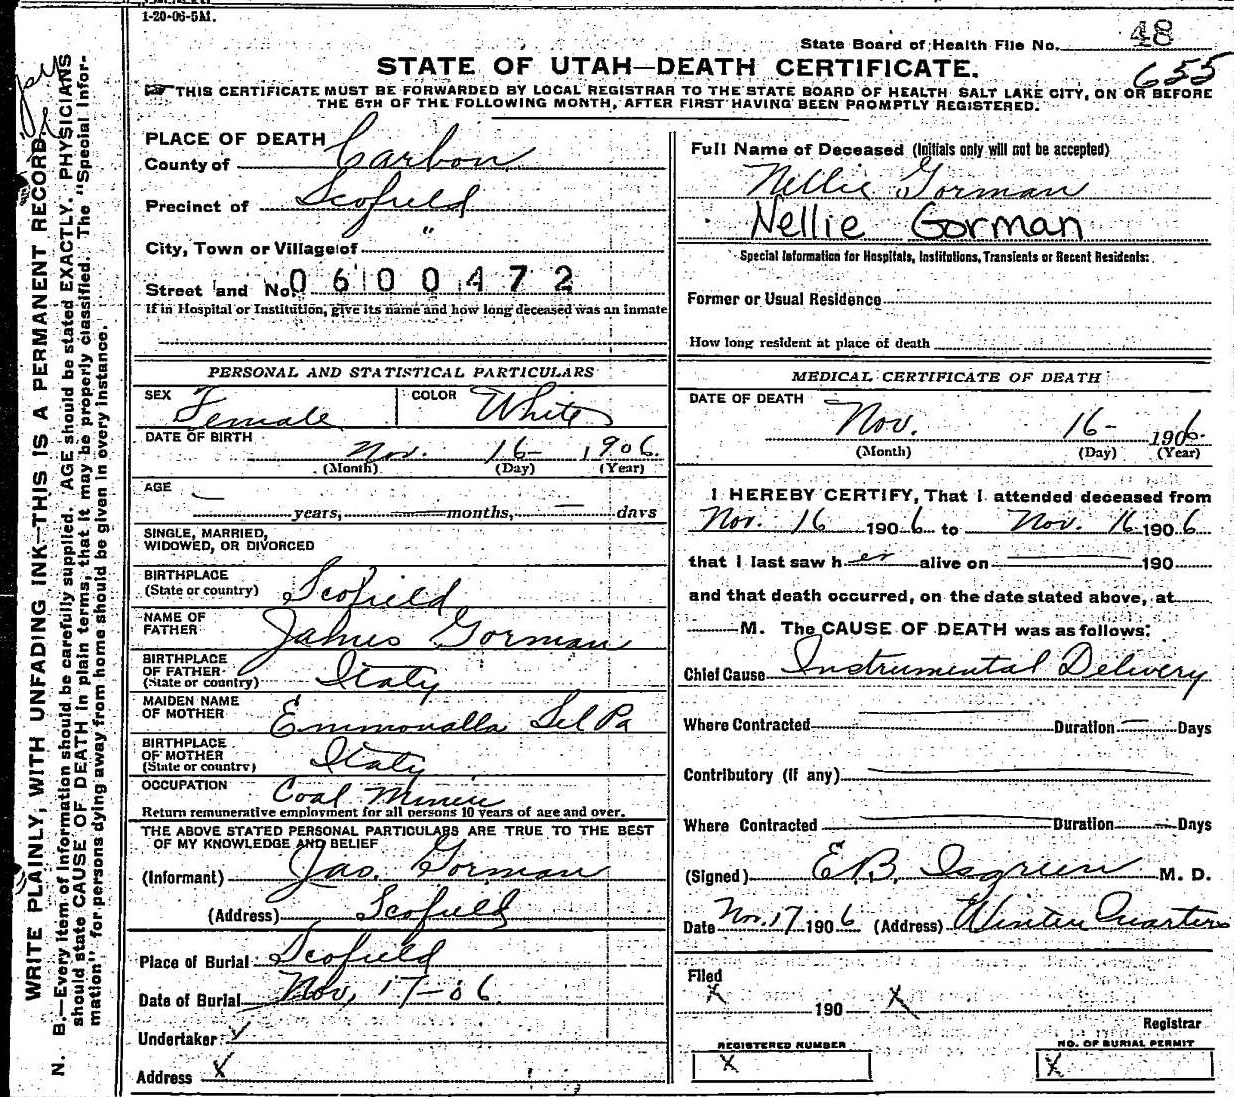 1-20-06-5M.
State Board of Health File No. 48
655
STATE OF UTAH—DEATH CERTIFICATE.
THIS CERTIFICATE MUST BE FORWARDED BY LOCAL REGISTRAR TO THE STATE BOARD OF HEALTH SALT LAKE CITY, ON OR BEFORE
THE 5TH OF THE FOLLOWING MONTH, AFTER FIRST HAVING BEEN PROMPTLY REGISTERED.
WRITE PLAINLY, WITH UNFADING INK—THIS IS A PERMANENT RECORD.
N. B.—Every item of information should be carefully supplied. AGE should be stated EXACTLY. PHYSICIANS
should state CAUSE OF DEATH in plain terms, that it may be properly classified. The "Special Infor-
mation" for persons dying away from home should be given in every instance.
PLACE OF DEATH
County of Carbon
Precinct of Scofield
City, Town or Village of "
Street and No. 0600472
If in Hospital or Institution, give its name and how long deceased was an inmate
PERSONAL AND STATISTICAL PARTICULARS
SEX Female COLOR White
DATE OF BIRTH Nov. 16- 1906.
(Month) (Day) (Year)
AGE — years, — months, — days
SINGLE, MARRIED,
WIDOWED, OR DIVORCED
BIRTHPLACE
(State or country) Scofield
NAME OF
FATHER James Gorman
BIRTHPLACE
OF FATHER
(State or country) Italy
MAIDEN NAME
OF MOTHER Emmonalla Del Pa
BIRTHPLACE
OF MOTHER
(State or country) Italy
OCCUPATION Coal Miner
Return remunerative employment for all persons 10 years of age and over.
THE ABOVE STATED PERSONAL PARTICULARS ARE TRUE TO THE BEST
OF MY KNOWLEDGE AND BELIEF
(Informant) Jas. Gorman
(Address) Scofield
Place of Burial Scofield
Date of Burial Nov, 17-06
Undertaker ✓
Address X
Full Name of Deceased (Initials only will not be accepted)
Nellie Gorman
Nellie Gorman
Special Information for Hospitals, Institutions, Transients or Recent Residents:
Former or Usual Residence
How long resident at place of death
MEDICAL CERTIFICATE OF DEATH
DATE OF DEATH
Nov. 16- 1906.
(Month) (Day) (Year)
I HEREBY CERTIFY, That I attended deceased from
Nov. 16 1906 to Nov. 16 1906
that I last saw her alive on — 190
and that death occurred, on the date stated above, at
M. The CAUSE OF DEATH was as follows:
Chief Cause Instrumental Delivery
Where Contracted — Duration — Days
Contributory (if any) —
Where Contracted — Duration — Days
(Signed) E.B. Isgreen M. D.
Date Nov. 17 1906 (Address) Winter Quarters
Filed
X 190 X
Registrar
REGISTERED NUMBER NO. OF BURIAL PERMIT
X X